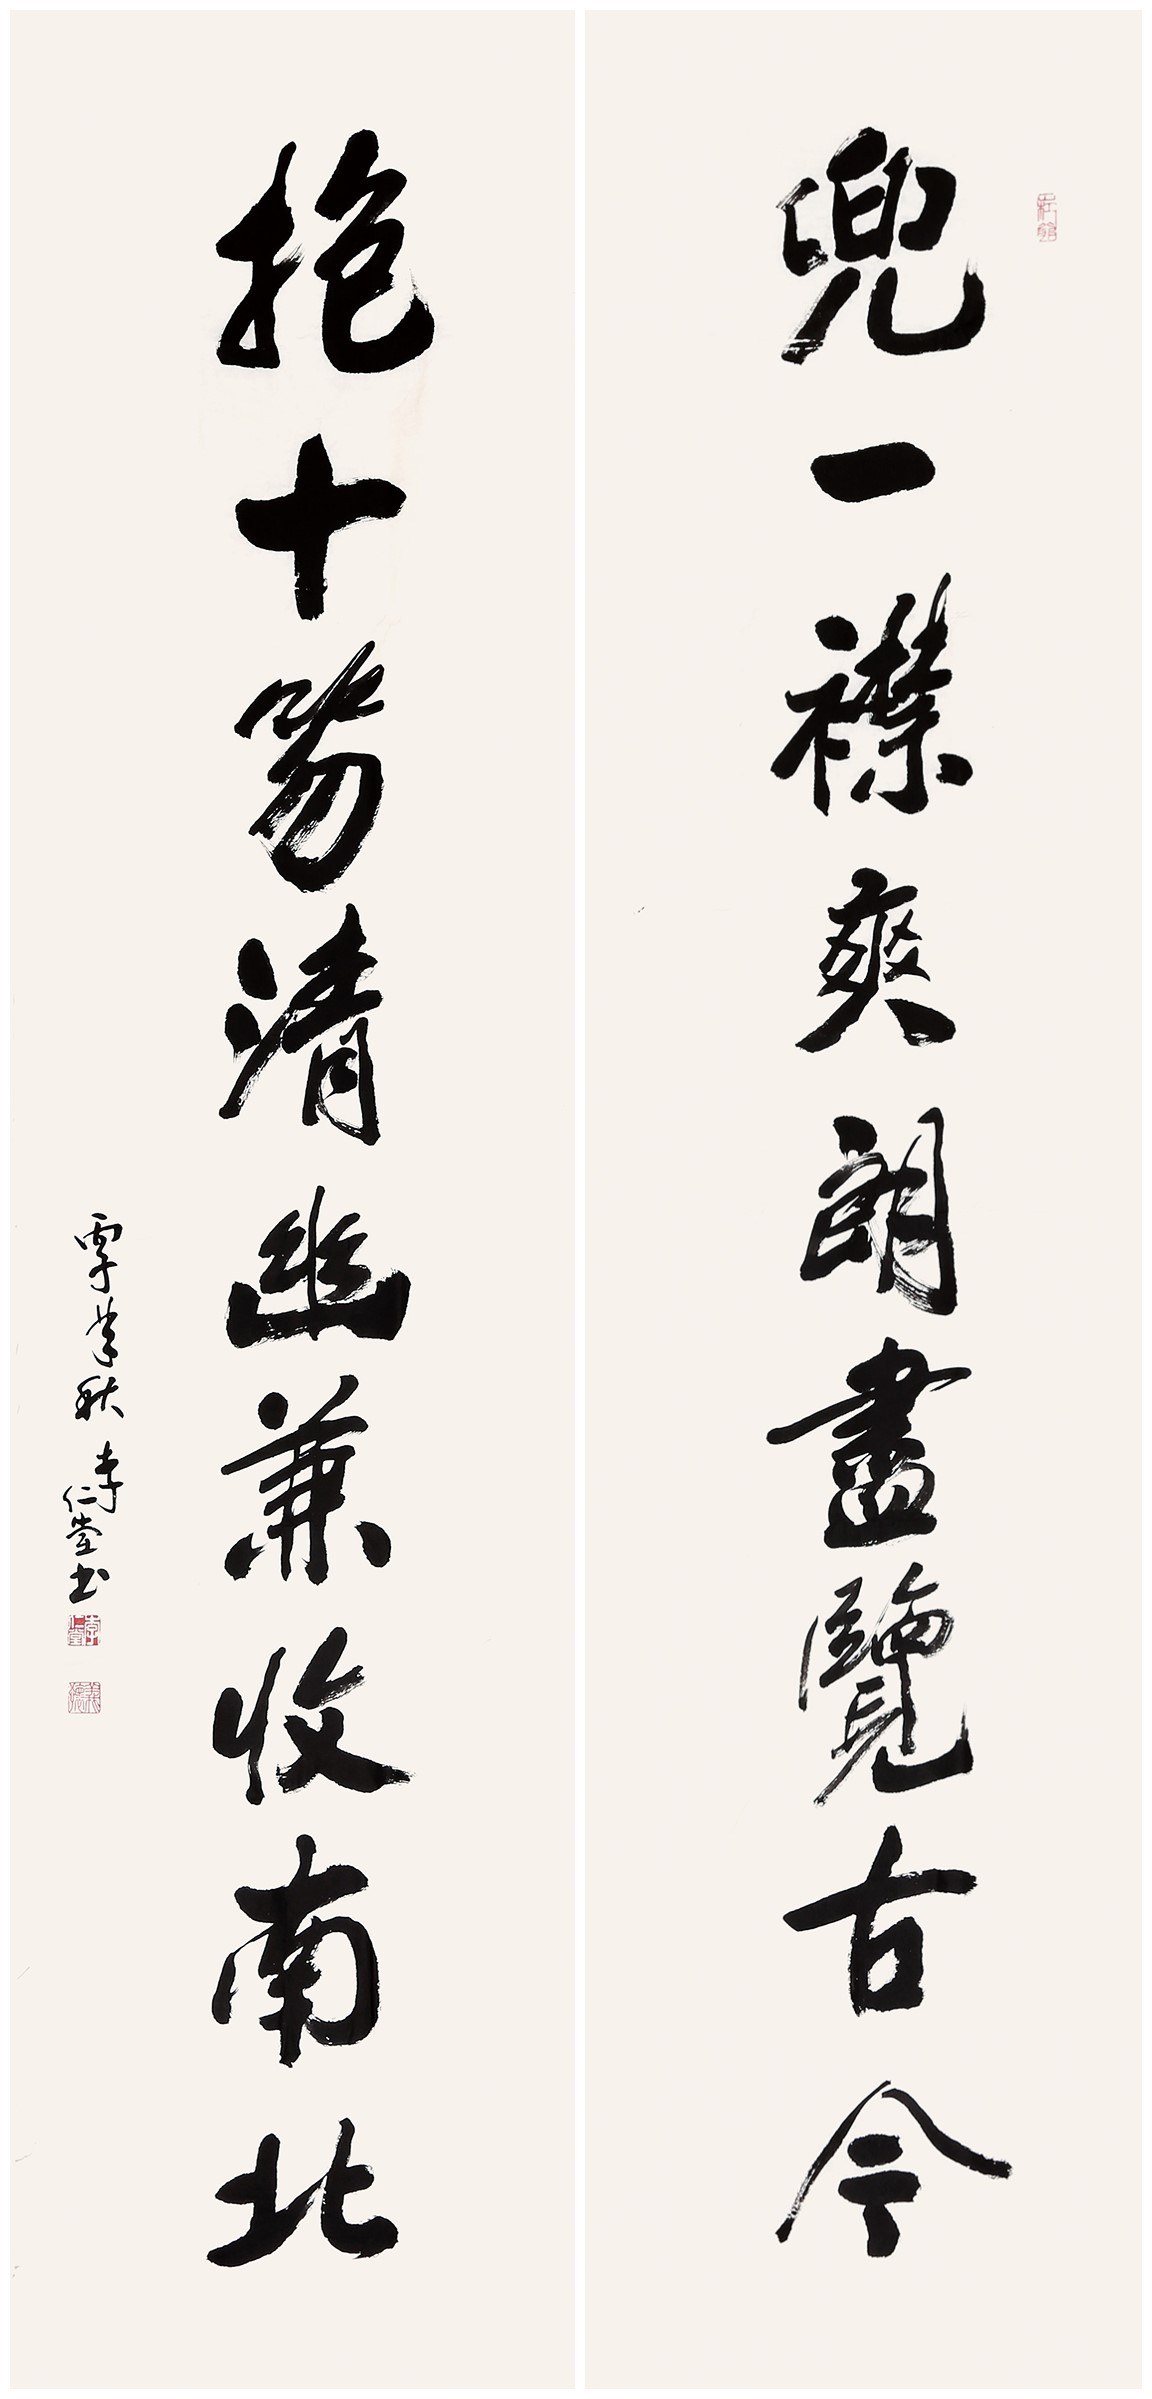 兜一襟爽朗盡覽古今
抱十笏清幽兼收南北
覃業秋
李仁堂书